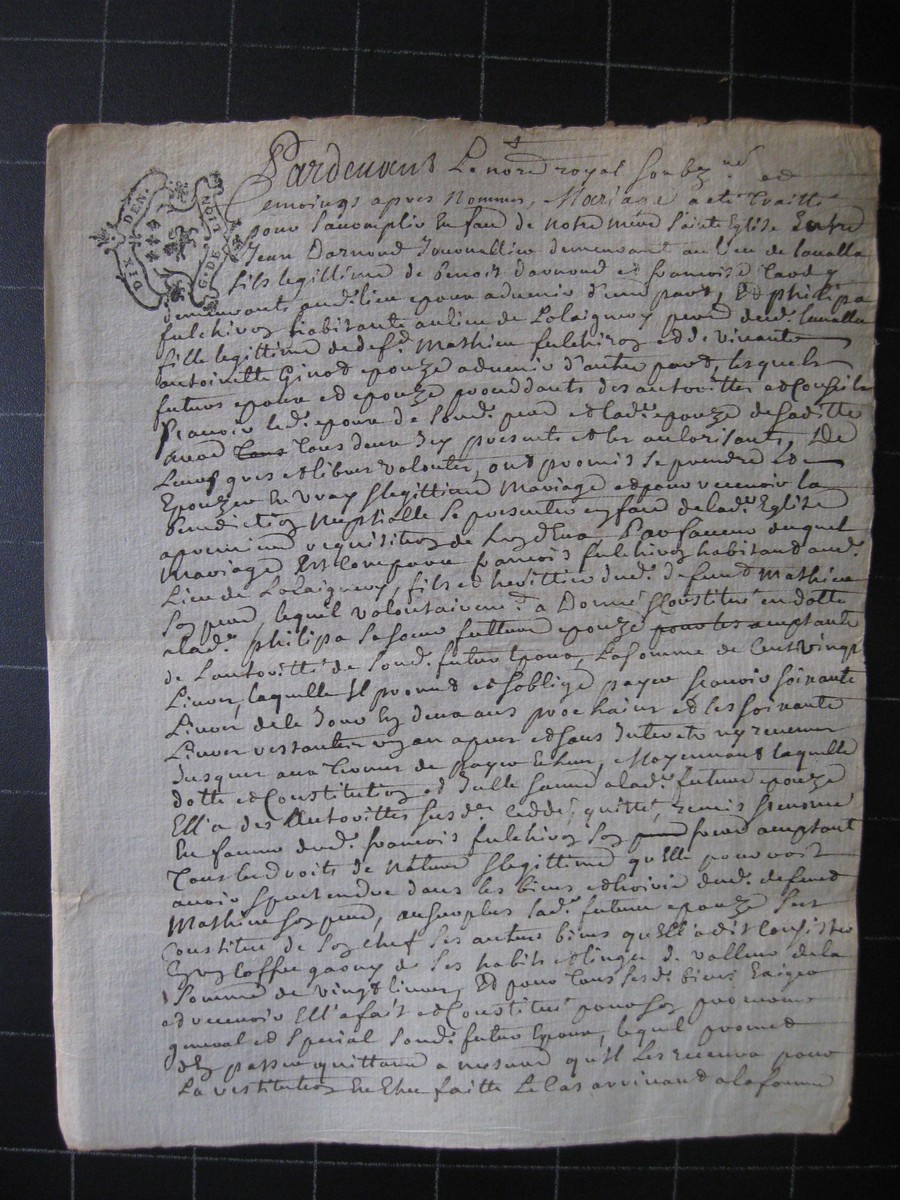 DIX DEN. G. DE LION
Pardevant Le nore royal soubz.né et
temoings apres Nommes, Mariage a eté traitté
pour saccomplir En face de notre mere Sainte Eglise Entre
Jean Darnoud demeurant au lieu de lavalla
fils legittime de Benoit darnoud et francoise tardy
demeurants aud. lieu epoux advenir d'une part, Et philipa
fulchiroz habitante au lieu de Lolaignox pnée dud. lavalla
fille legittime de def.t Mathieu fulchiroz et de vivante
antoinette Ginot epouze advenir d'autre part, lesquels
futurs epoux et epouze proceddants des autorittes et Conseils
scavoir led. epoux de Sond. pere et lad. epouze de saditte
mere tous deux Icy presents et les autorisants, De
leurs gres et libres volontes, ont promis se prendre et
Epouzer En vray & legittime Mariage et pour recevoir la
Benediction Nuptialle Se presenter en face de lad. Eglise
a premiere requisition de Luy d'Eux, En faveur duquel
Mariage Est Comparu francois fulchiroz habitant aud.
Lieu de Lolaignox, fils et herittier dud. defunt Mathieu
son pere, lequel volontairem.t a Donné & Constitué en dotte
a lad. philipa Sa soeur future epouze acceptante
de Lautoritté de Sond. futur Epoux, La somme de Cent vingt
Livres, laquelle Il promet et soblige payer scavoir soixante
Livres de ce Jour En deux ans prochains et les soixante
Livres restantes un an apres et sans Interets ny revenus
Jusques aux termes de payer Echus, Moyennant laquelle
dotte et Constitution et Icelle lad. future epouze
Ell'a des Autorittes susd.es ceddé, quitté, remis & renoncé
En faveur dud. francois fulchiroz son frere acceptant
Tous les droits de Nature & legittime qu'elle pouvoit
avoir & pretendre dans les biens et hoirie dud. defunt
Mathieu son pere, au surplus lad. future epouze s'est
Constitué de Son chef ses autres biens qu'ell'a dit Consister
En un Coffre garny de ses habits et linges de valleur de la
Somme de vingt livres, Et pour tous sesd. biens Exiger
et recevoir Ell'a fait et Constitué pour son procureur
general et Special Sond. futur Epoux, lequel promet
d'En passer quittance a mesure qu'il Les recevra pour
La restitution En Etre faitte Le Cas arrivant a la forme